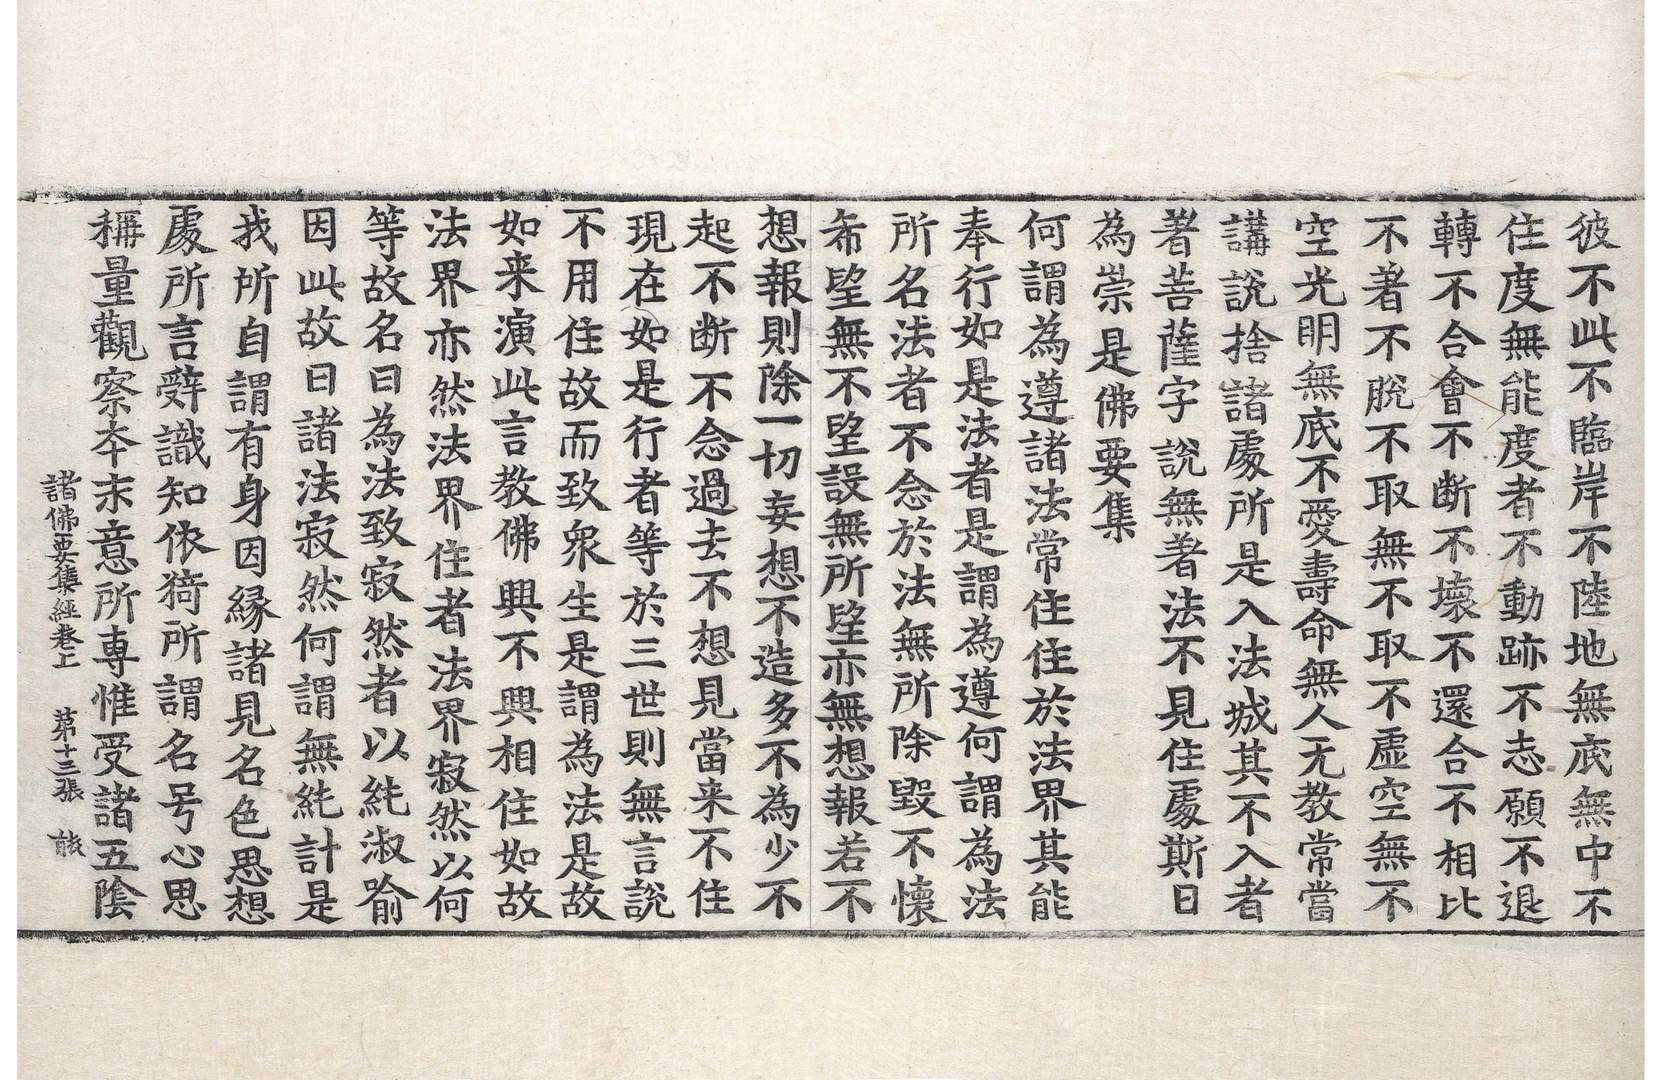 彼不此不臨岸不陸地無底無中不
住度無能度者不動跡不志願不退
轉不合會不断不壞不還合不相比
不著不脫不取無不取不虛空無不
空光明無底不愛壽命無人无教常當
講說捨諸處所是入法城其不入者
著菩薩字說無著法不見住處斯曰
為崇是佛要集
何謂為遵諸法常住住於法界其能
奉行如是法者是謂為遵何謂為法
所名法者不念於法無所除毀不懷
希望無不望設無所望亦無想報若不
想報則除一切妄想不造多不為少不
起不断不念過去不想見當来不住
現在如是行者等於三世則無言說
不用住故而致衆生是謂為法是故
如来演此言教佛興不興相住如故
法界亦然法界住者法界寂然以何
等故名曰為法致寂然者以純淑喻
因此故曰諸法寂然何謂無純計是
我所自謂有身因緣諸見名色思想
處所言辝識知依猗所謂名号心思
稱量觀察本末意所専惟受諸五陰
諸佛要集經巻上　苐十三張　䏻